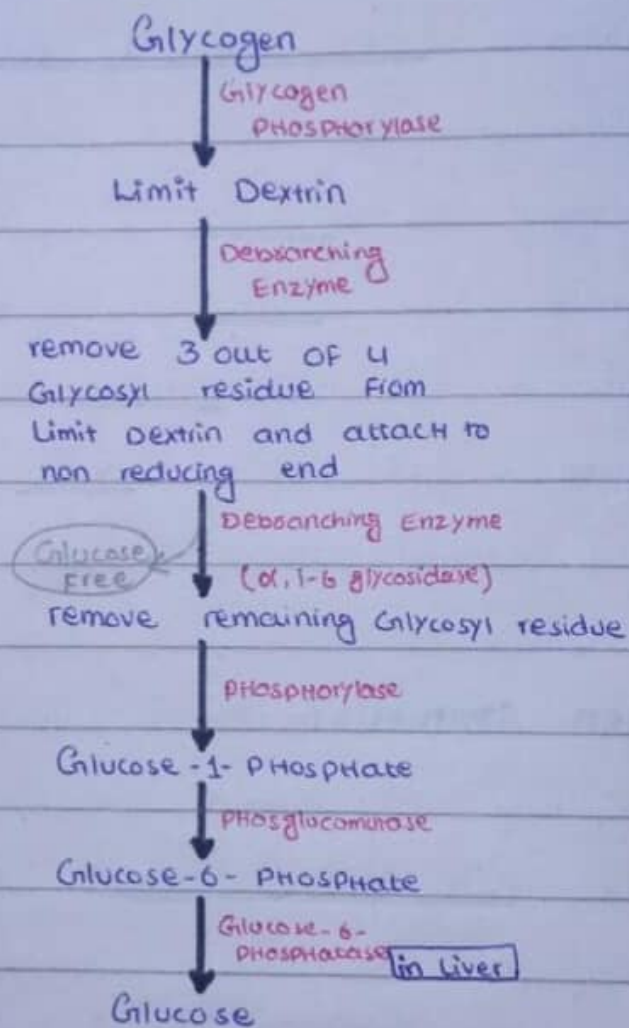 Glycogen
Glycogen
PHosPHorylase
Limit Dextrin
Debranching
Enzyme
remove 3 out oF 4
Glycosyl residue From
Limit Dextrin and attacH to
non reducing end
Debranching Enzyme
Glucose
Free
(α,1-6 glycosidase)
remove remaining Glycosyl residue
PHosPHorylase
Glucose-1-PHosPHate
PHosglucomutase
Glucose-6-PHosPHate
Glucose-6-
PHosPHatase in Liver
Glucose